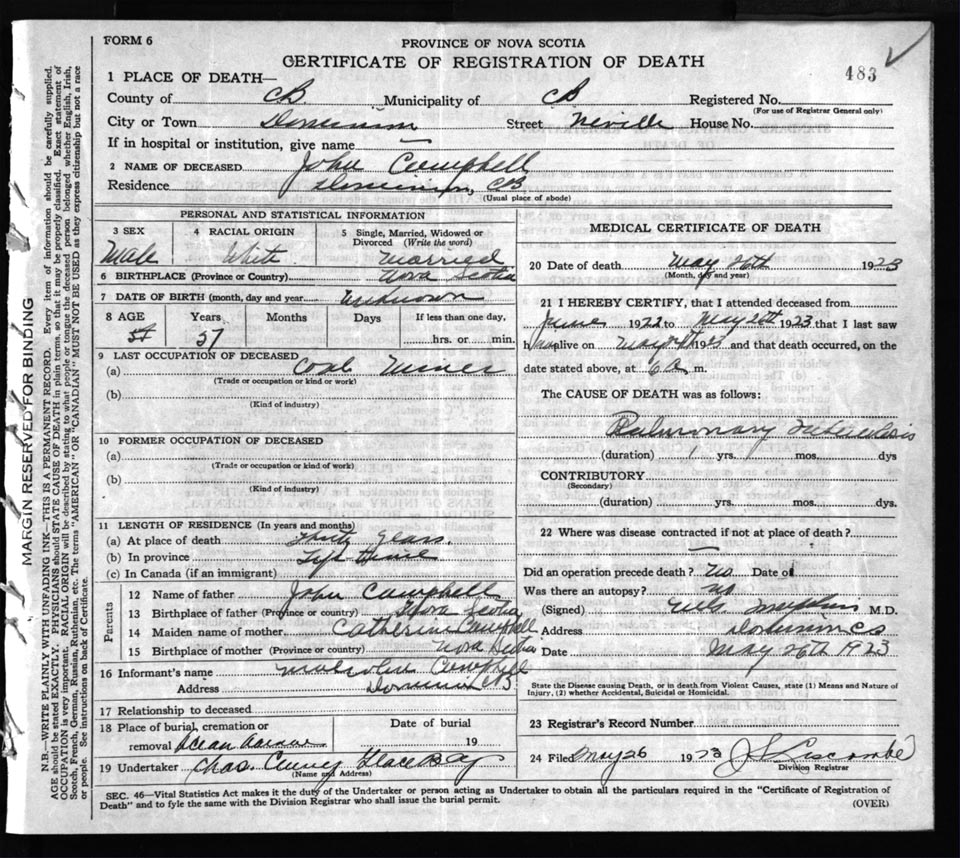 FORM 6
PROVINCE OF NOVA SCOTIA
CERTIFICATE OF REGISTRATION OF DEATH
483
1 PLACE OF DEATH—
County of CB Municipality of CB Registered No.
(For use of Registrar General only)
City or Town Dominion Street Neville House No.
If in hospital or institution, give name —
2 NAME OF DECEASED John Campbell
Residence Dominion, CB
(Usual place of abode)
PERSONAL AND STATISTICAL INFORMATION
3 SEX 4 RACIAL ORIGIN 5 Single, Married, Widowed or
Divorced (Write the word)
Male White Married
6 BIRTHPLACE (Province or Country) Nova Scotia
7 DATE OF BIRTH (month, day and year Unknown
8 AGE Years Months Days If less than one day,
57
hrs. or min.
9 LAST OCCUPATION OF DECEASED
(a) Coal Miner
(Trade or occupation or kind or work)
(b)
(Kind of industry)
10 FORMER OCCUPATION OF DECEASED
(a)
(Trade or occupation or kind of work)
(b)
(Kind of industry)
11 LENGTH OF RESIDENCE (In years and months)
(a) At place of death Thirty Years.
(b) In province Life time
(c) In Canada (if an immigrant)
Parents
12 Name of father John Campbell
13 Birthplace of father (Province or country) Nova Scotia
14 Maiden name of mother Catherine Campbell
15 Birthplace of mother (Province or country) Nova Scotia
16 Informant's name Campbell
Address Dominion CB
17 Relationship to deceased
18 Place of burial, cremation or Date of burial
removal 19
19 Undertaker Chas. Glace Bay
(Name and Address)
MEDICAL CERTIFICATE OF DEATH
20 Date of death May 26th 1923
(Month, day and year)
21 I HEREBY CERTIFY, that I attended deceased from
June 1922 to May 26th 1923 that I last saw
h alive on May 1923 and that death occurred, on the
date stated above, at 6 a. m.
The CAUSE OF DEATH was as follows:
Pulmonary Tuberculosis
(duration) 1 yrs. mos. dys
CONTRIBUTORY
(Secondary)
(duration) yrs. mos. dys.
22 Where was disease contracted if not at place of death?
—
Did an operation precede death? No Date of
Was there an autopsy? No
(Signed) M.D.
Address Dominion CB
Date May 26th 1923
State the Disease causing Death, or in death from Violent Causes, state (1) Means and Nature of
Injury, (2) whether Accidental, Suicidal or Homicidal.
23 Registrar's Record Number
24 Filed May 26 1923
Division Registrar
SEC. 46—Vital Statistics Act makes it the duty of the Undertaker or person acting as Undertaker to obtain all the particulars required in the "Certificate of Registration of
Death" and to fyle the same with the Division Registrar who shall issue the burial permit.
(OVER)
MARGIN RESERVED FOR BINDING
N.B.—WRITE PLAINLY WITH UNFADING INK—THIS IS A PERMANENT RECORD. Every item of information should be carefully supplied.
AGE should be stated EXACTLY. PHYSICIANS should STATE CAUSE OF DEATH in plain terms, so that it may be properly classified. Exact statement of
OCCUPATION is very important. RACIAL ORIGIN will be described by stating to what people or tongue the deceased person belonged whether English, Irish,
Scotch, French, German, Russian, Ruthenian, etc. The terms "AMERICAN" OR "CANADIAN" MUST NOT BE USED as they express citizenship but not a race
or people. See instructions on back of Certificate.